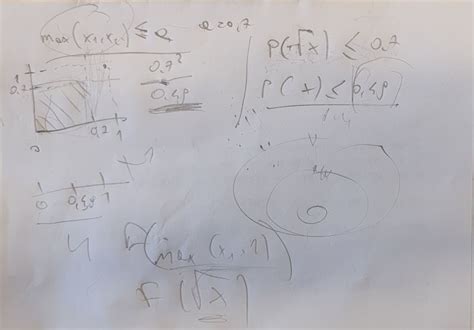 max(x₁,x₂) ≤ a a=0,7
0,7²
0,49
1
0,7
0 0,7 1
P(√x) ≤ 0,7
P(x) ≤ 0,49
0 0,49 1
F(max(x₁,1)
F(√x)